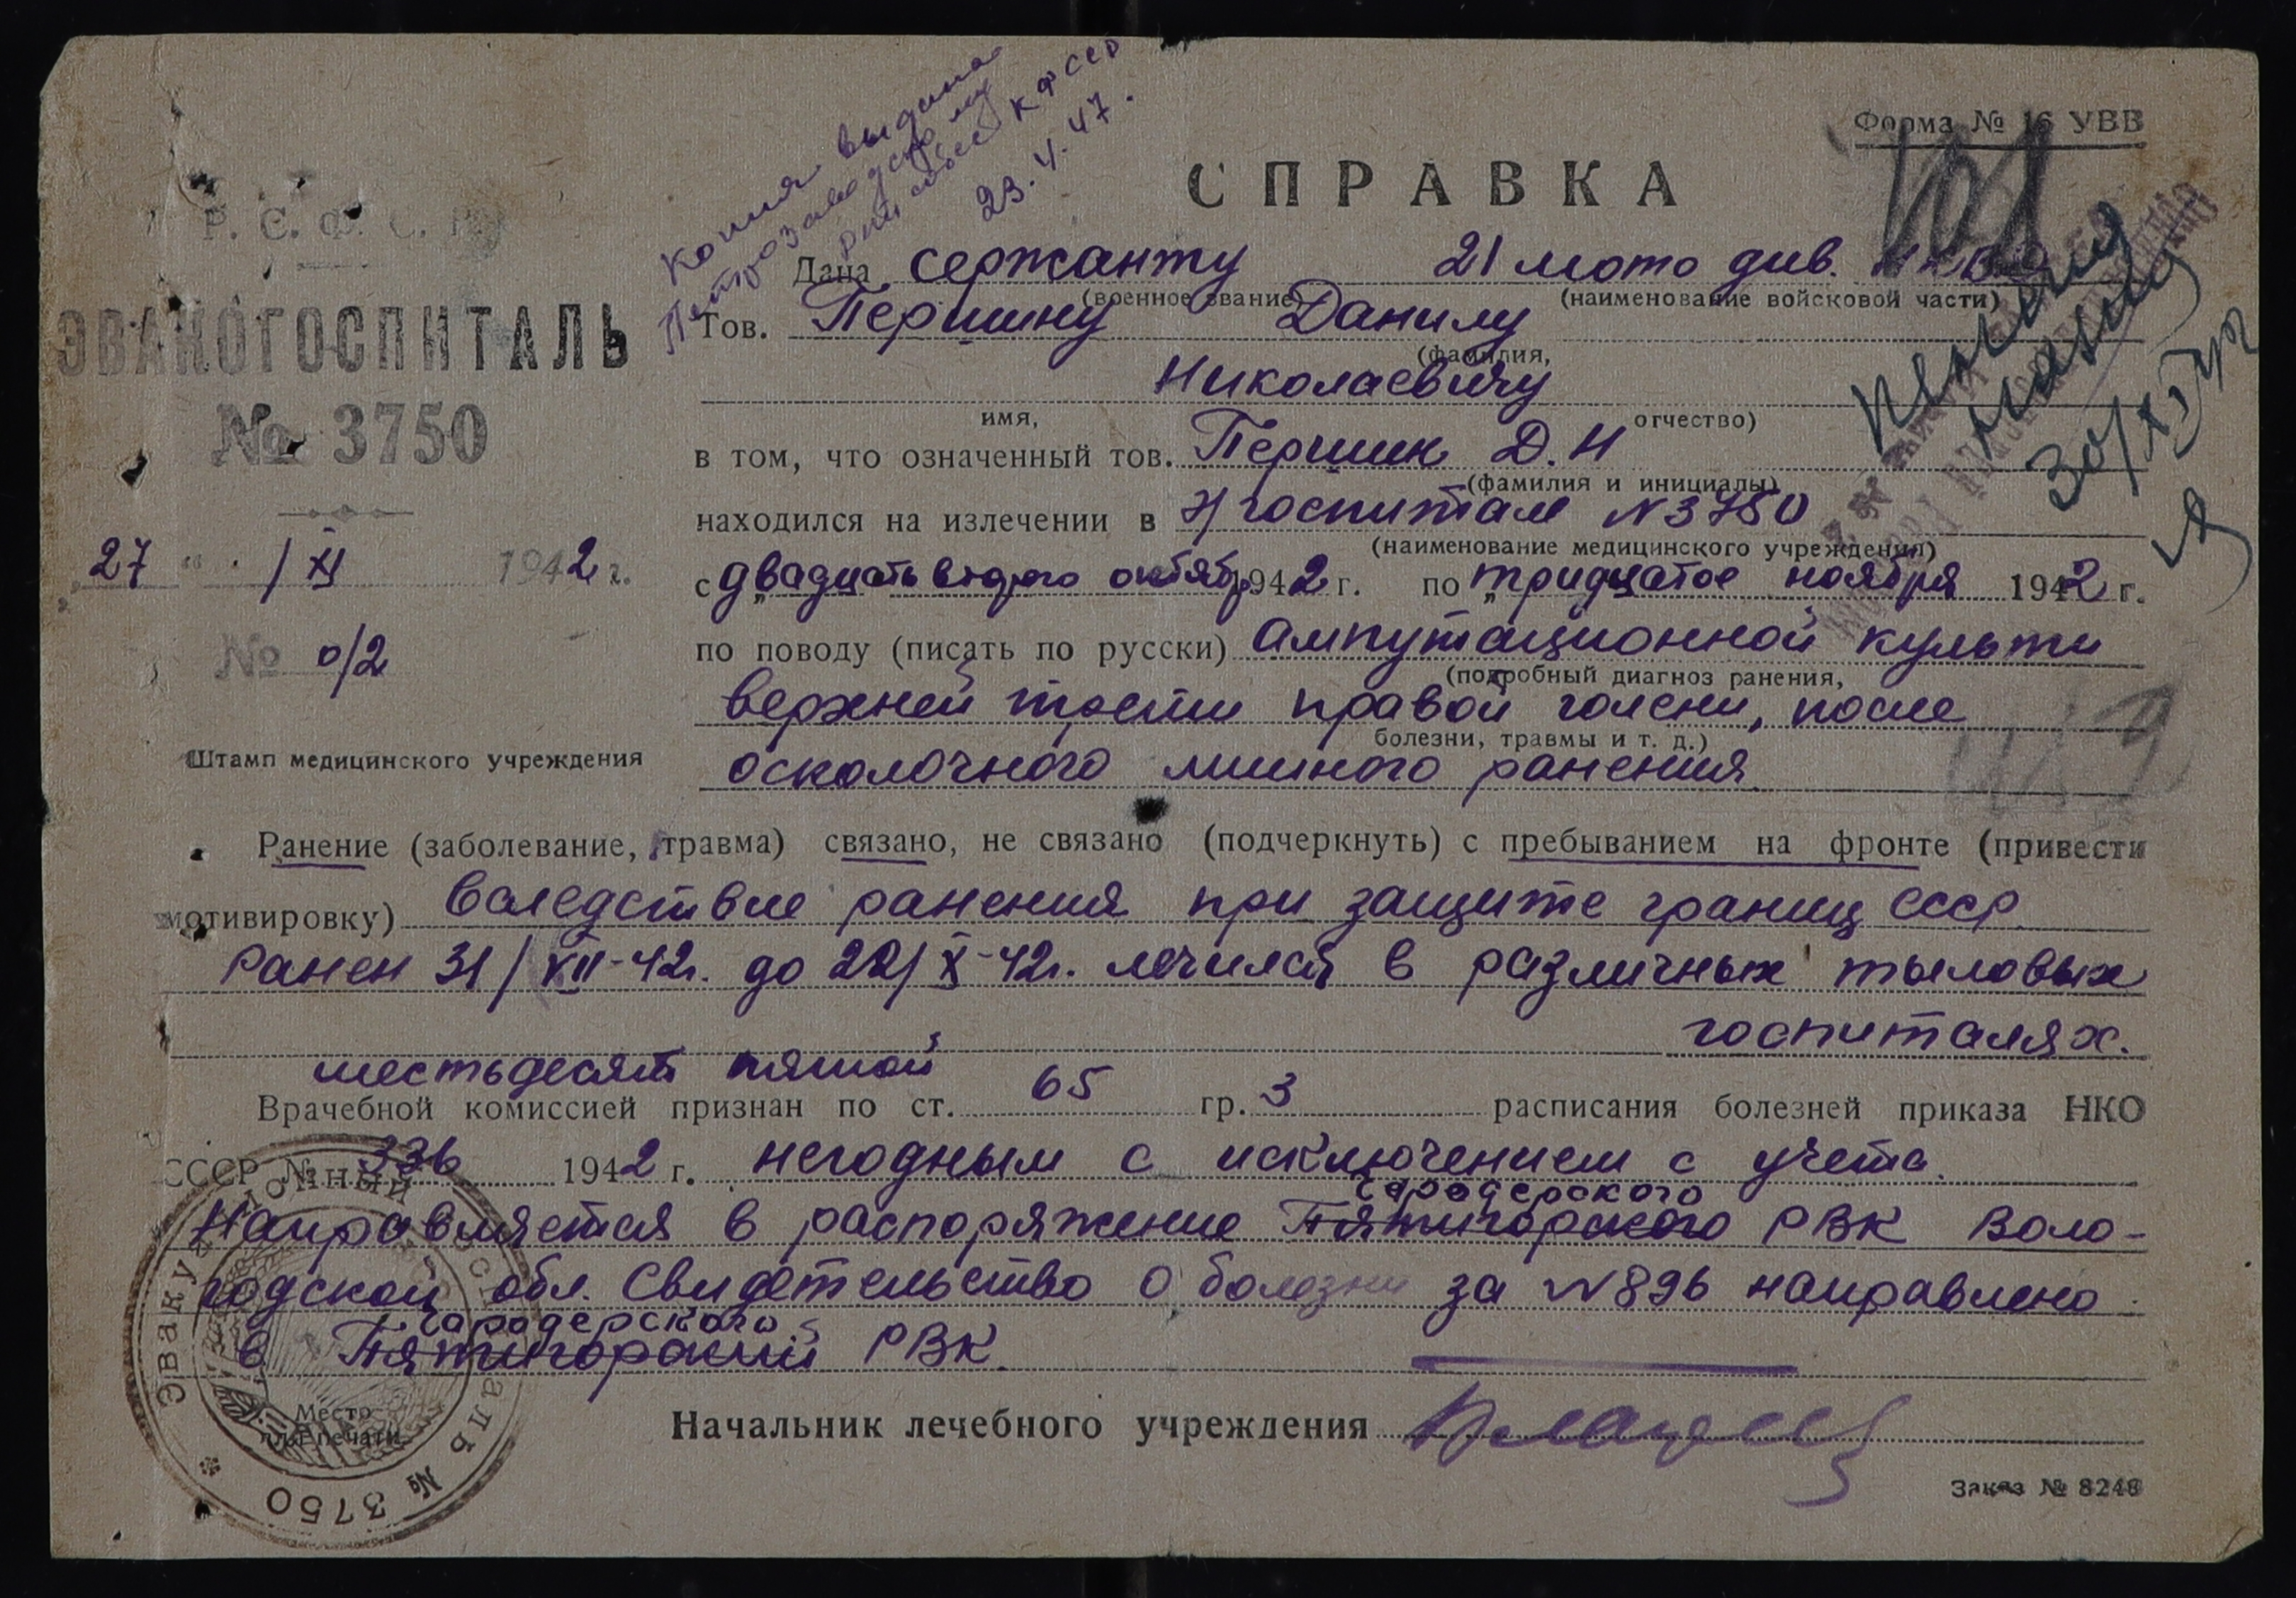 Копия выдана
Петрозаводскому
рай собес КФССР
23.4.47.
Форма № 16 УВВ
СПРАВКА
Р. С. Ф. С. Р.
ЭВАКОГОСПИТАЛЬ
№ 3750
„27" / XI 1942 г.
№ 0/2
Штамп медицинского учреждения
Дана сержанту 21 мото див.
(военное звание) (наименование войсковой части)
Тов. Першину Данилу
(фамилия,
Николаевичу
имя, отчество)
30/XI
в том, что означенный тов. Першин Д. Н
(фамилия и инициалы)
находился на излечении в э/госпитале N 3750
(наименование медицинского учреждения)
с „двадцать второго октябр 1942 г. по „тридцатое ноября 1942 г.
по поводу (писать по русски) Ампутационной культи
(подробный диагноз ранения,
верхней трети правой голени, после
болезни, травмы и т. д.)
осколочного ранения
Ранение (заболевание, травма) связано, не связано (подчеркнуть) с пребыванием на фронте (привести
мотивировку) Вследствие ранения при защите границ СССР
Ранен 31/XII-42г. до 22/X-42г. лечился в различных тыловых
госпиталях.
шестьдесят пятой
Врачебной комиссией признан по ст. 65 гр. 3 расписания болезней приказа НКО
СССР № 336 1942 г. негодным с исключением с учета.
Направляется в распоряжение Пятигорского РВК Воло-
годской обл. Свидетельство о болезни за N 896 направлено
в Пятигорский РВК
Место
печати
Эвакуационный госпиталь № 3750
Начальник лечебного учреждения
Заказ № 8248